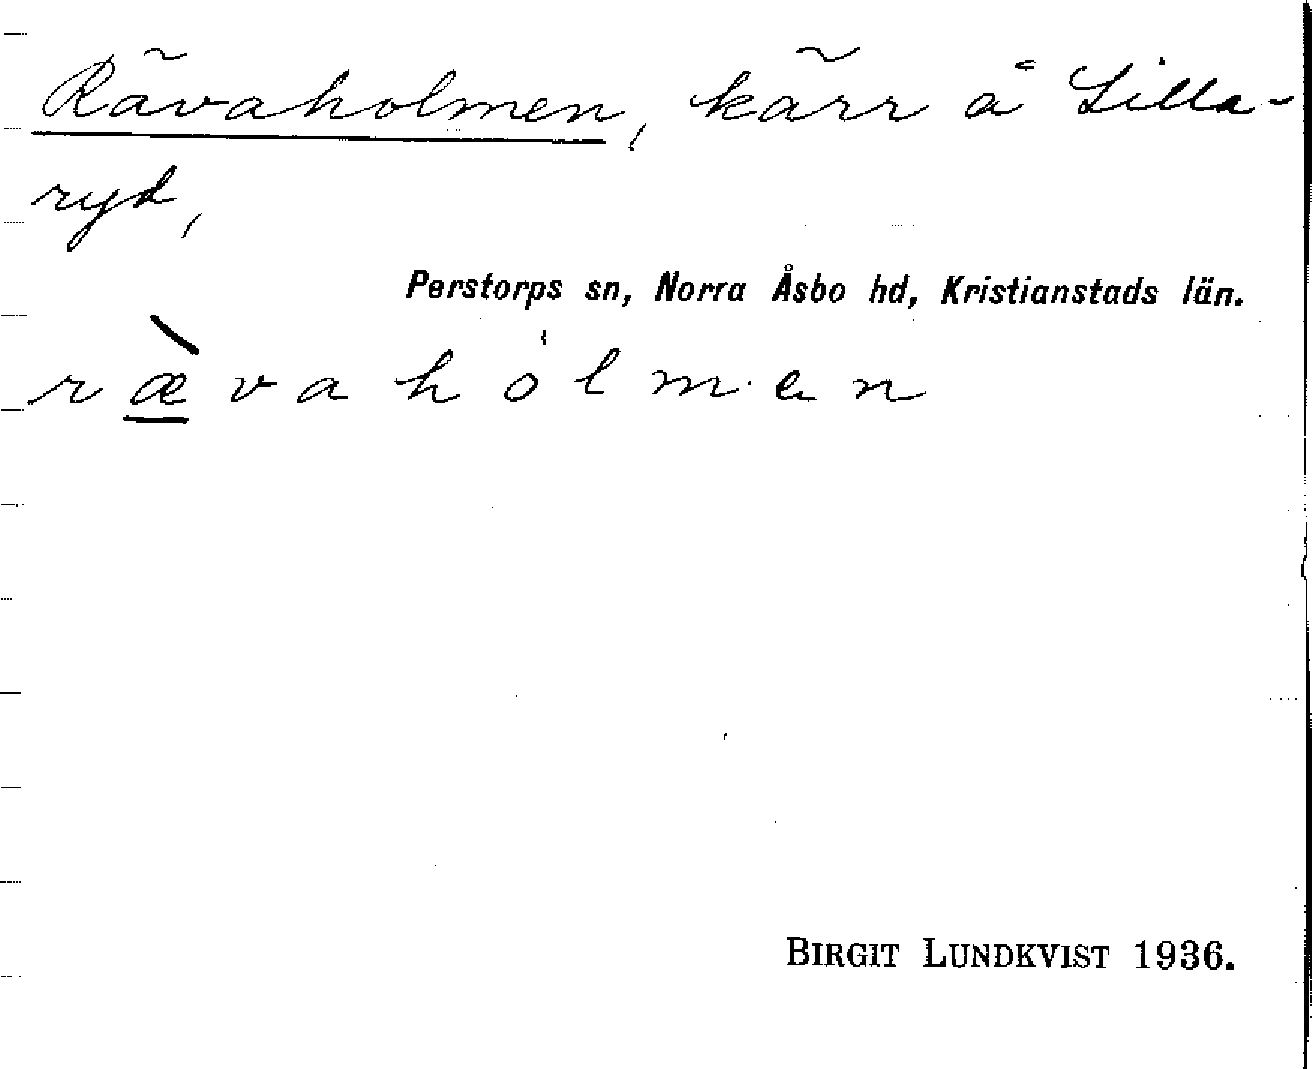 Rävaholmen, kärr å Lilla-
ryd,
Perstorps sn, Norra Åsbo hd, Kristianstads län.
r æ̀ v a h ó l m e n
BIRGIT LUNDKVIST 1936.